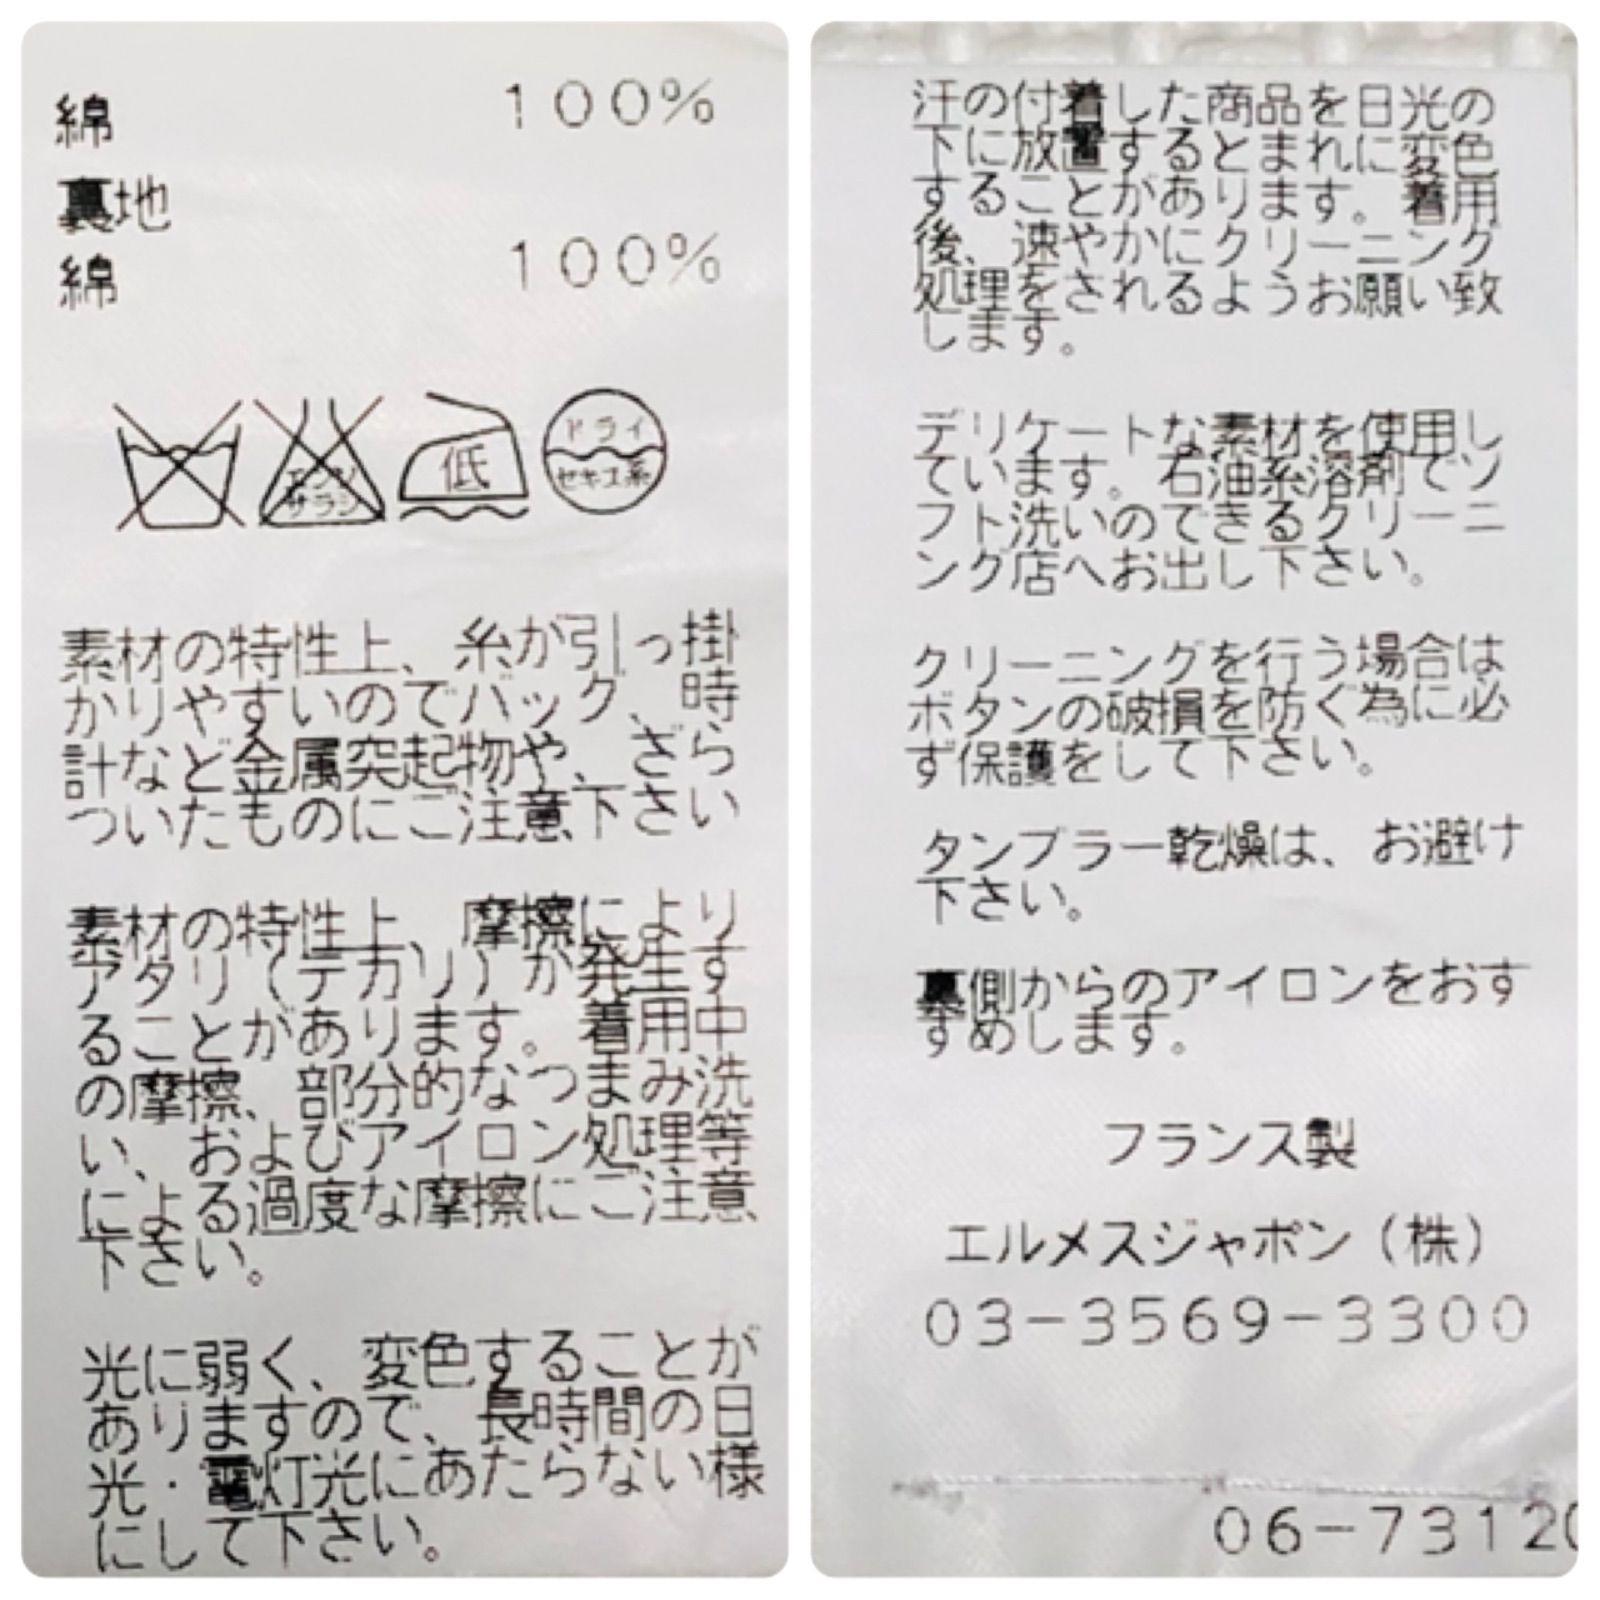 綿 100%
裏地
綿 100%
エンソ
サラシ
低
ドライ
セキユ系
素材の特性上、糸が引っ掛
かりやすいのでバッグ、時
計など金属突起物や、ざら
ついたものにご注意下さい
素材の特性上、摩擦により
アタリ(テカリ)が発生す
ることがあります。着用中
の摩擦、部分的なつまみ洗
い、およびアイロン処理等
による過度な摩擦にご注意
下さい。
光に弱く、変色することが
ありますので、長時間の日
光・電灯光にあたらない様
にして下さい。
汗の付着した商品を日光の
下に放置するとまれに変色
することがあります。着用
後、速やかにクリーニング
処理をされるようお願い致
します。
デリケートな素材を使用し
ています。石油系溶剤でソ
フト洗いのできるクリーニ
ング店へお出し下さい。
クリーニングを行う場合は
ボタンの破損を防ぐ為に必
ず保護をして下さい。
タンブラー乾燥は、お避け
下さい。
裏側からのアイロンをおす
すめします。
フランス製
エルメスジャポン(株)
03-3569-3300
06-73120